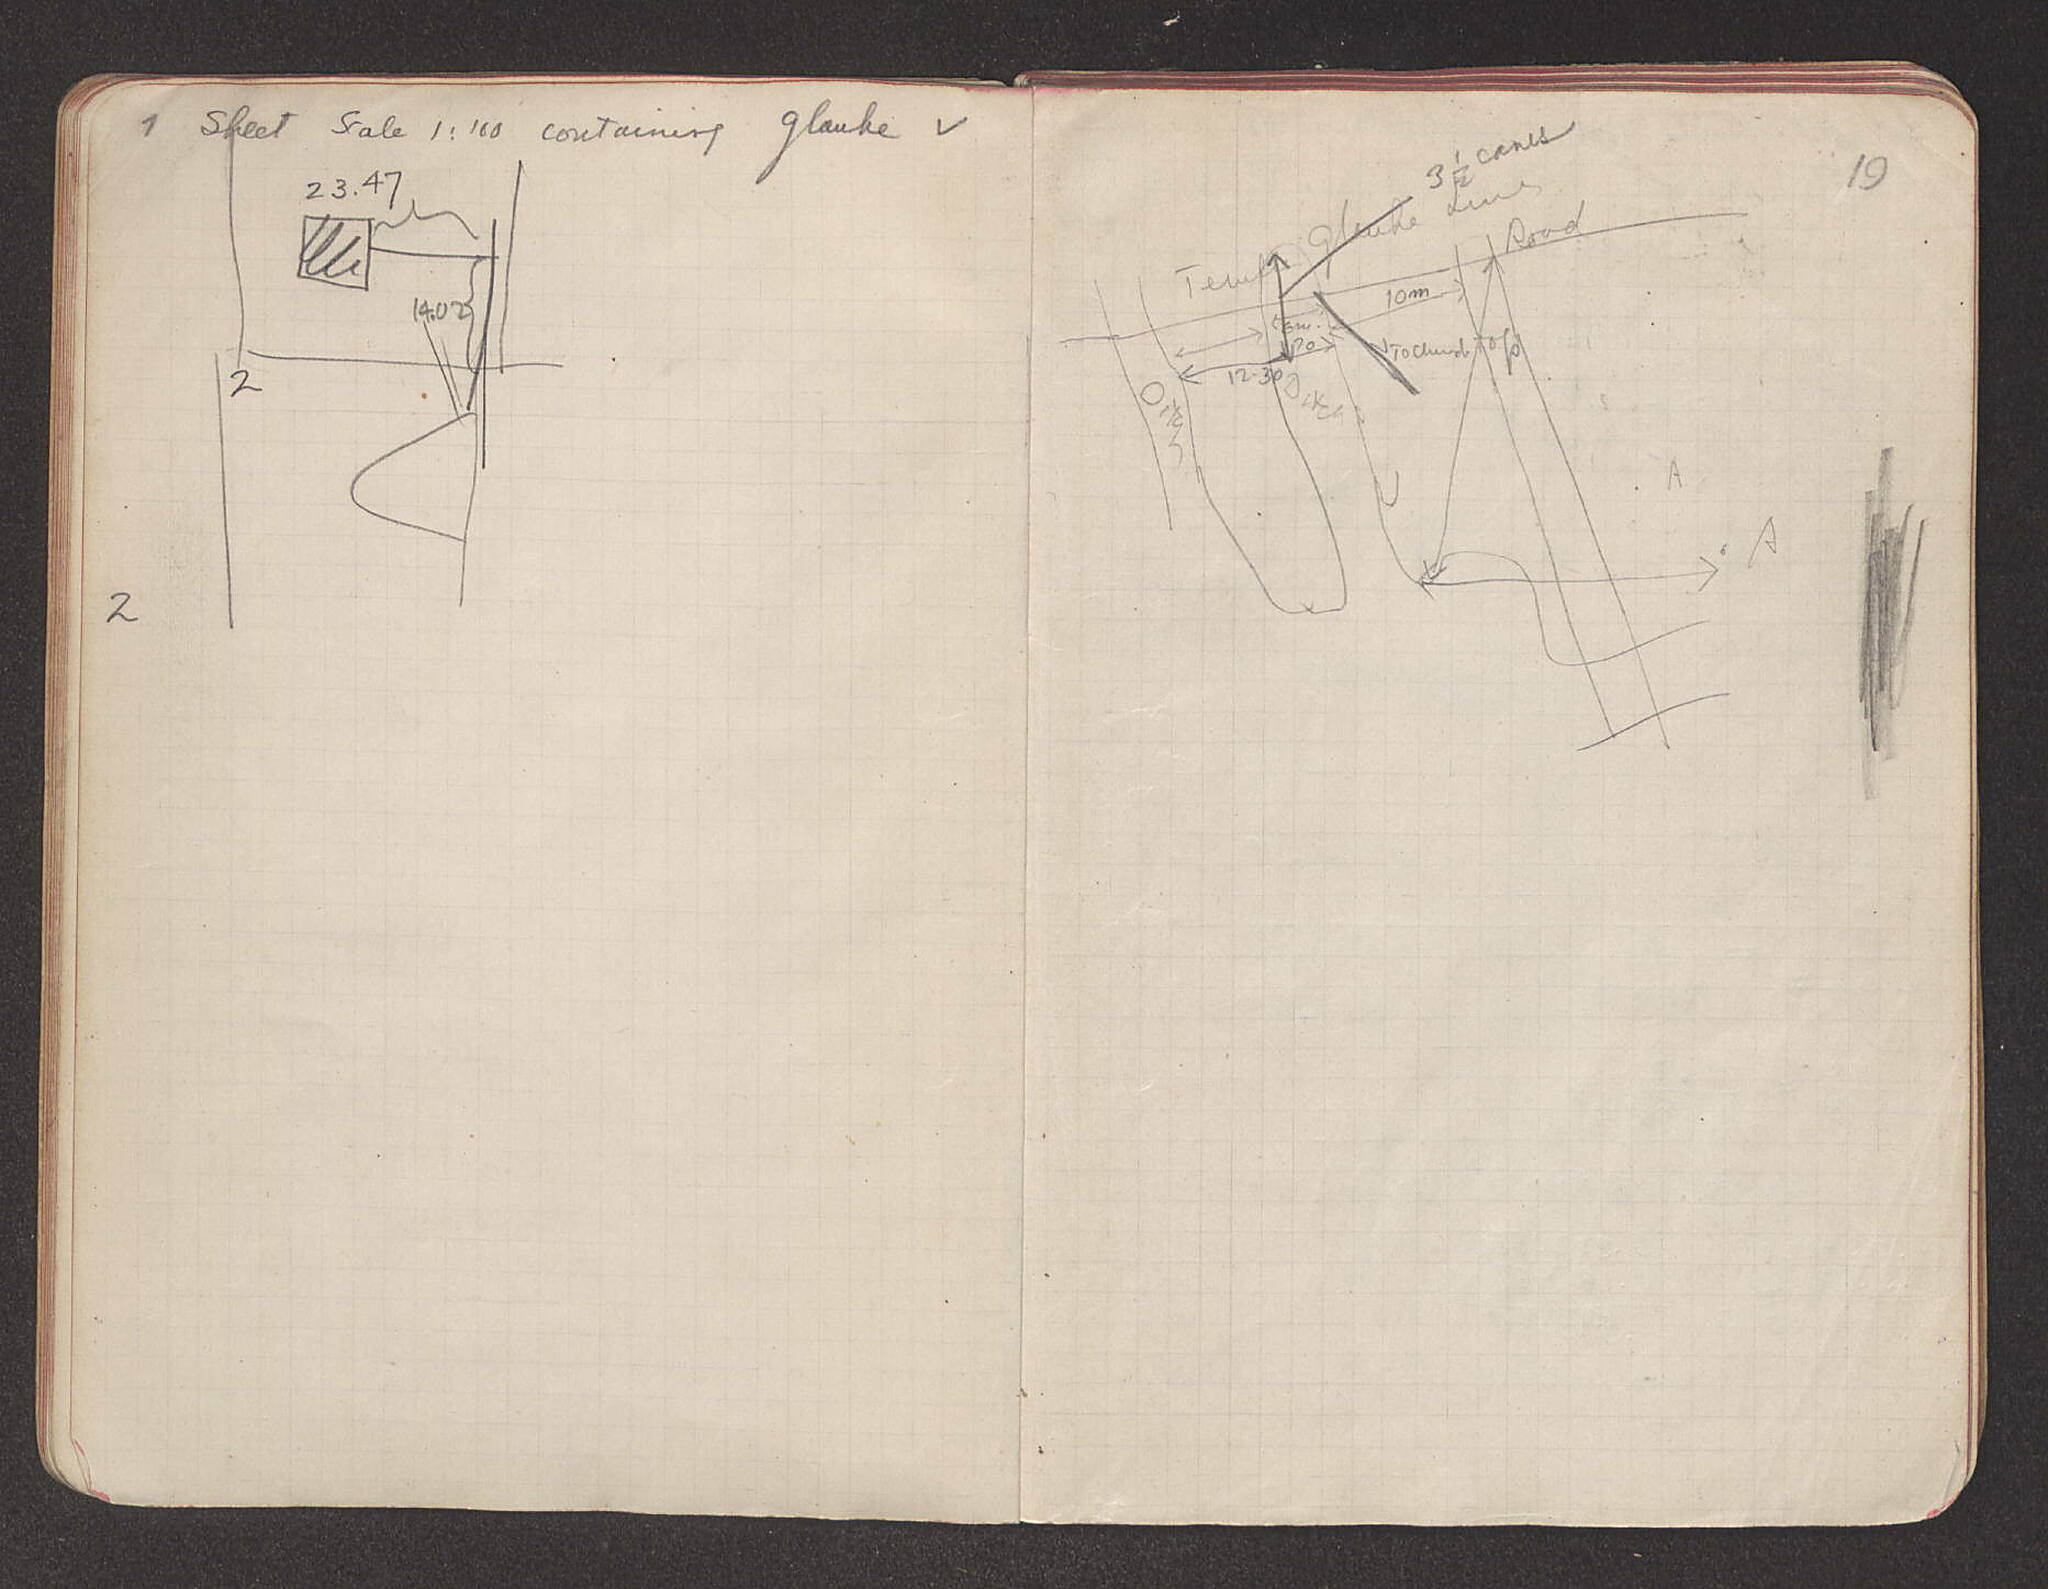 1 Sheet Scale 1:100 containing Glauke ✓
23.47
14.02
2
2
19
3 1/2 canes
Glauke Lines
Road
10m
12.30
To Church
Top
Ditch
Ditch
A
A